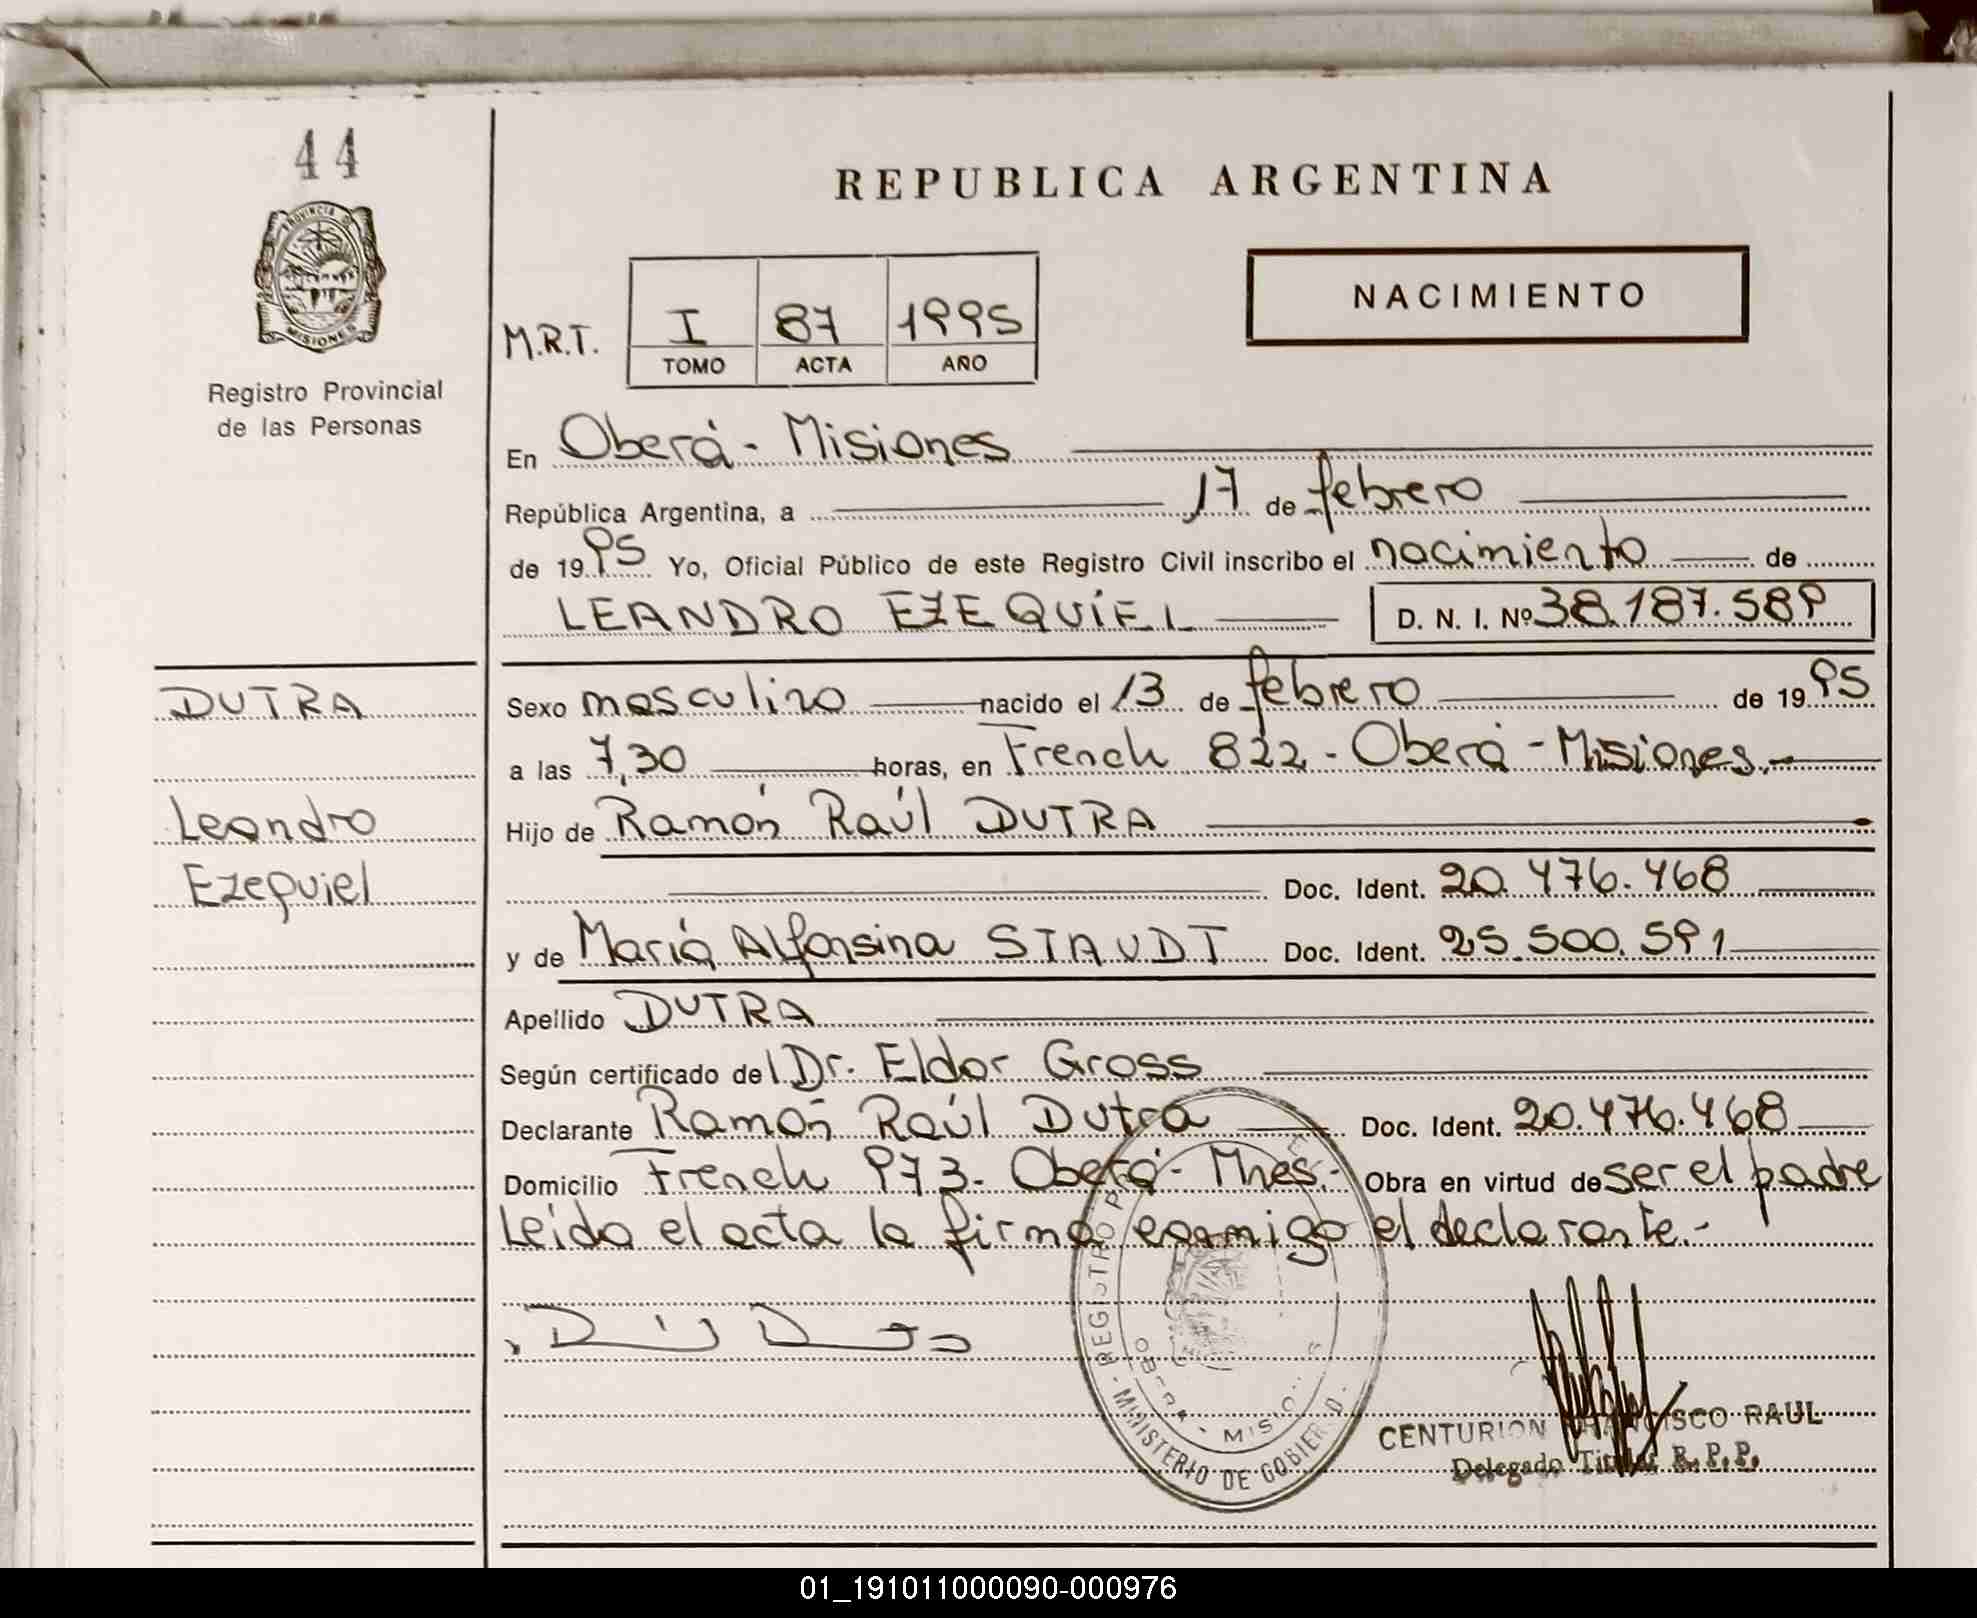 44
REPUBLICA ARGENTINA
PROVINCIA DE MISIONES
Registro Provincial
de las Personas
M.R.T.
I 87 1995
TOMO ACTA AÑO
NACIMIENTO
En Oberá - Misiones
República Argentina, a 17 de febrero
de 1995 Yo, Oficial Público de este Registro Civil inscribo el nacimiento de
LEANDRO EZEQUIEL D. N. I. Nº 38.187.589
DUTRA
Leandro
Ezequiel
Sexo masculino nacido el 13 de febrero de 1995
a las 7,30 horas, en French 822 - Oberá - Misiones.-
Hijo de Ramón Raúl DUTRA
Doc. Ident. 20.476.468
y de María Alfonsina STAUDT Doc. Ident. 25.500.591
Apellido DUTRA
Según certificado del Dr. Eldor Gross
Declarante Ramón Raúl Dutra Doc. Ident. 20.476.468
Domicilio French 973. Oberá - Mnes.- Obra en virtud de ser el padre
Leída el acta la firma conmigo el declarante.-
REGISTRO P
OBERA - MISIO
MINISTERIO DE GOBIERNO
CENTURION FRANCISCO RAUL
Delegado Titular R.P.P.
01_191011000090-000976